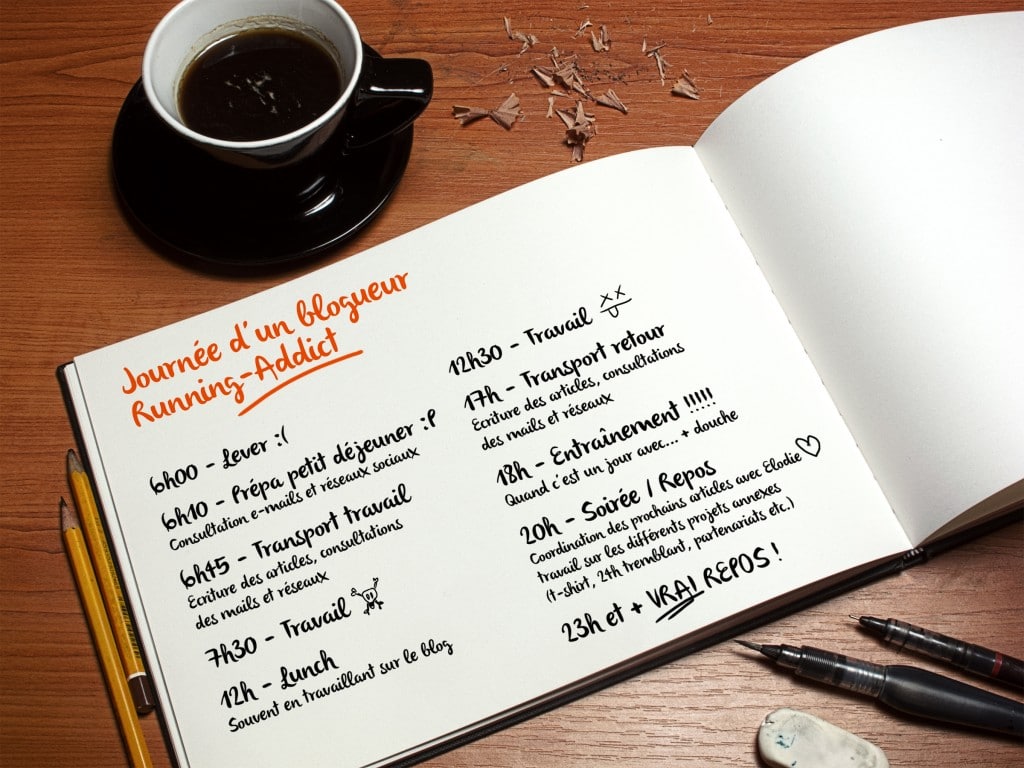 Journée d'un blogueur
Running-Addict
6h00 - Lever :(
6h10 - Prépa petit déjeuner :P
Consultation e-mails et réseaux sociaux
6h45 - Transport travail
Ecriture des articles, consultations
des mails et réseaux
7h30 - Travail
12h - Lunch
Souvent en travaillant sur le blog
12h30 - Travail
17h - Transport retour
Ecriture des articles, consultations
des mails et réseaux
18h - Entraînement !!!!!
Quand c'est un jour avec... + douche
20h - Soirée / Repos
Coordination des prochains articles avec Elodie
travail sur les différents projets annexes
(t-shirt, 24h tremblant, partenariats etc.)
23h et + VRAI REPOS !